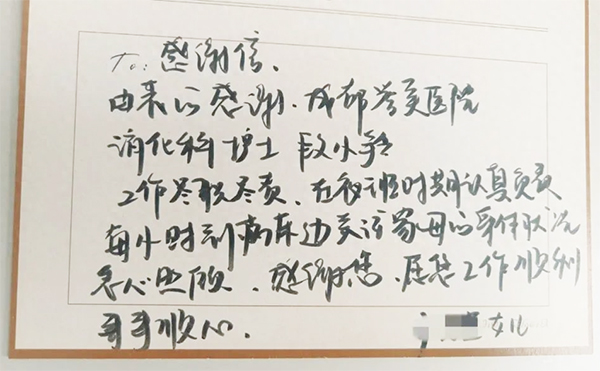 To: 感谢信.
由衷的感谢.成都誉美医院
消化科护士 段小
工作尽职尽责、在夜班时期认真负责
每小时到病床边关注家母的身体状况
悉心照顾.感谢您.愿您工作顺利
事事顺心.
女儿